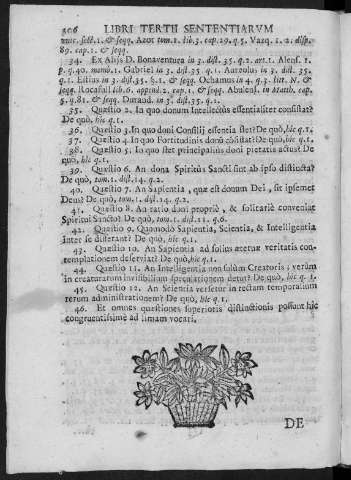 306 LIBRI TERTII SENTENTIARVM
nunc. sect. 1. & seqq. Azor tom. 1. lib. 3. cap. 29. q. 5. Vazq. 1. 2. disp.
89. cap. 1. & seqq.
34. Ex Alijs D. Bonaventura in 3. dist. 35. q. 2. art. 1. Alens. 1.
p. q. 40. memb. 1. Gabriel in 3. dist. 35. q. 1. Aureolus in 3. dist. 35.
q. 1. Estius in 3. dist. 35. §. 1. & seqq. Ochamus in 4. q. 3. litt. N. &
seqq. Rocafull lib. 6. append. 2. cap. 1. & seqq. Abulens. in Matth. cap.
5. q. 81. & seqq. Durand. in 3. dist. 35. q. 1.
35. Quæstio 2. In quo donum Intellectus essentialiter consistat?
De quò, hic q. 1.
36. Quæstio 3. In quo doni Consilij essentia stet? De quò, hic q. 1.
37. Quæstio 4. In quo Fortitudinis donũ cõsistat? De quò, hic q. 1.
38. Quæstio 5. In quo stet principalius doni pietatis actus? De
quò, hic q. 1.
39. Quæstio 6. An dona Spiritûs Sancti sint ab ipso distincta?
De quò, tom. 1. dist. 14. q. 2.
40. Quæstio 7. An Sapientia, quæ est donum Dei, sit ipsemet
Deus? De quò, tom. 1. dist. 14. q. 2.
41. Quæstio 8. An ratio doni propriè, & solitariè conveniat
Spiritui Sancto? De quò, tom. 1. dist. 18. q. 6.
42. Quæstio 9. Quomodò Sapientia, Scientia, & Intelligentia
inter se differant? De quò, hic q. 1.
43. Quæstio 10. An Sapientia ad solius æternæ veritatis con-
templationem deserviat? De quò, hic q. 1.
44. Quæstio 11. An Intelligentia non solùm Creatoris; verùm
in creaturarum invisibilium speculationem detur? De quò, hic q. 1.
45. Quæstio 12. An Scientia versetur in rectam temporalium
rerum administrationem? De quò, hic q. 1.
46. Et omnes quæstiones superioris distinctionis possunt hîc
congruentissimè ad limam vocari.
DE